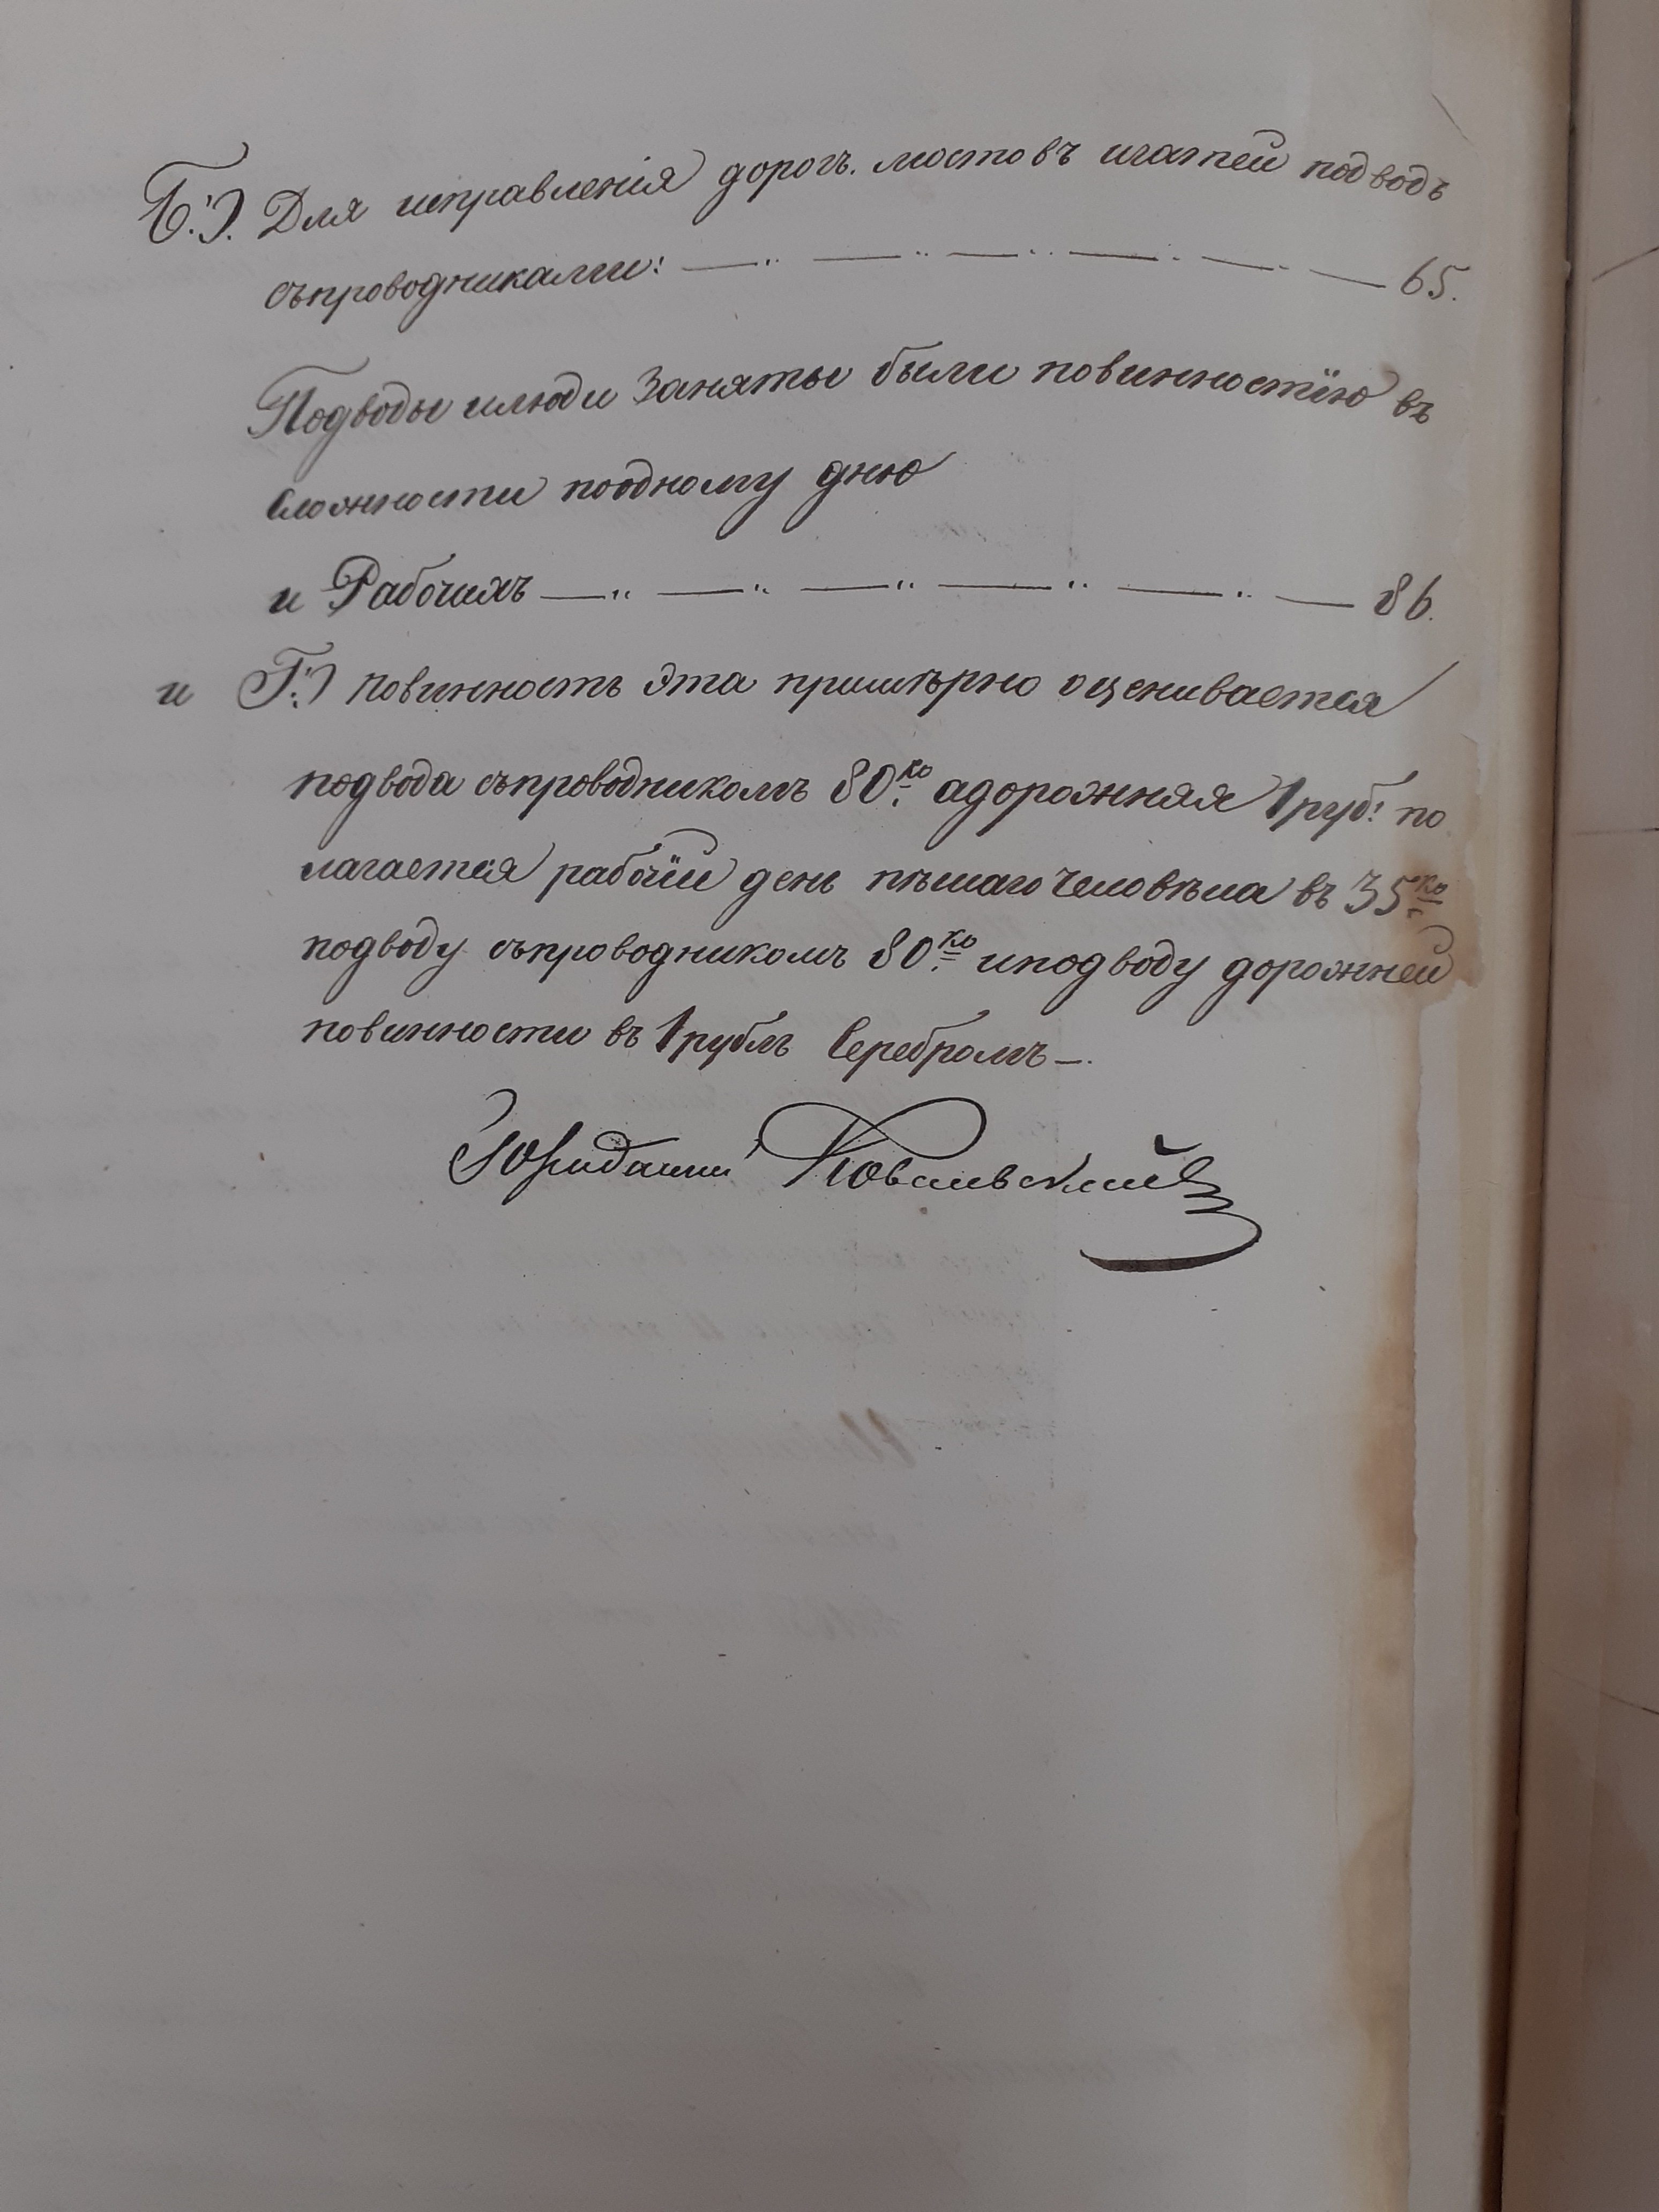 Б.) Для исправленія дорогъ. мостовъ игатей подводъ
съпроводниками: 65.
Подводы илюди заняты были повинностїю въ
сложности поодному дню
и Рабочихъ 86.
и Г.) повинность эта примѣрно оценивается
подвода съпроводникомъ 80 ко адорожняя 1 руб: по
лагается рабочїй день пѣшаго человѣка въ 35 ко
подводу съпроводникомъ 80 ко иподводу дорожней
повинности въ 1 рубль Серебромъ
Ковалевскій